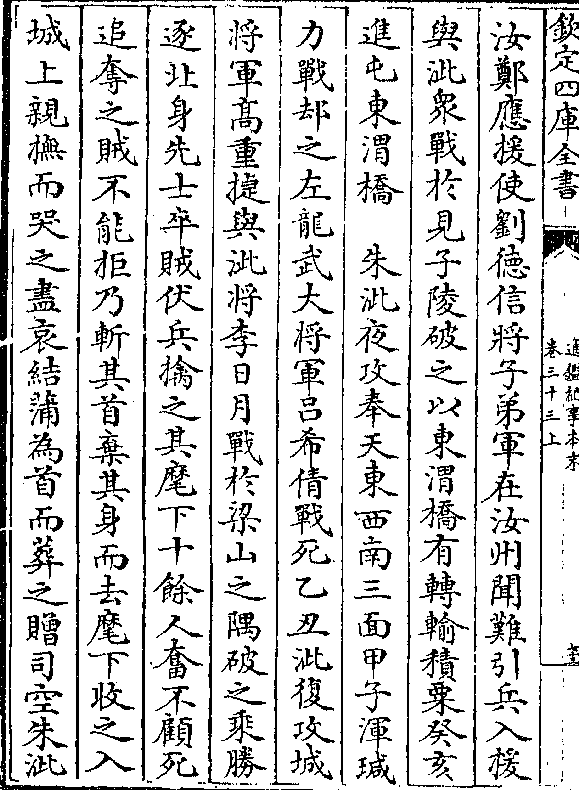 欽定四庫全書
通鑑紀事本末
卷三十三上
汝鄭應援使劉德信將子弟軍在汝州聞難引兵入援
與泚衆戰於見子陵破之以東渭橋有轉輸積粟癸亥
進屯東渭橋　朱泚夜攻奉天東西南三面甲子渾瑊
力戰却之左龍武大将軍吕希倩戰死乙丑泚復攻城
将軍髙重捷與泚將李日月戰於梁山之隅破之乘勝
逐北身先士卒賊伏兵擒之其麾下十餘人奮不顧死
追奪之賊不能拒乃斬其首棄其身而去麾下收之入
城上親撫而哭之盡哀結蒲為首而葬之贈司空朱泚